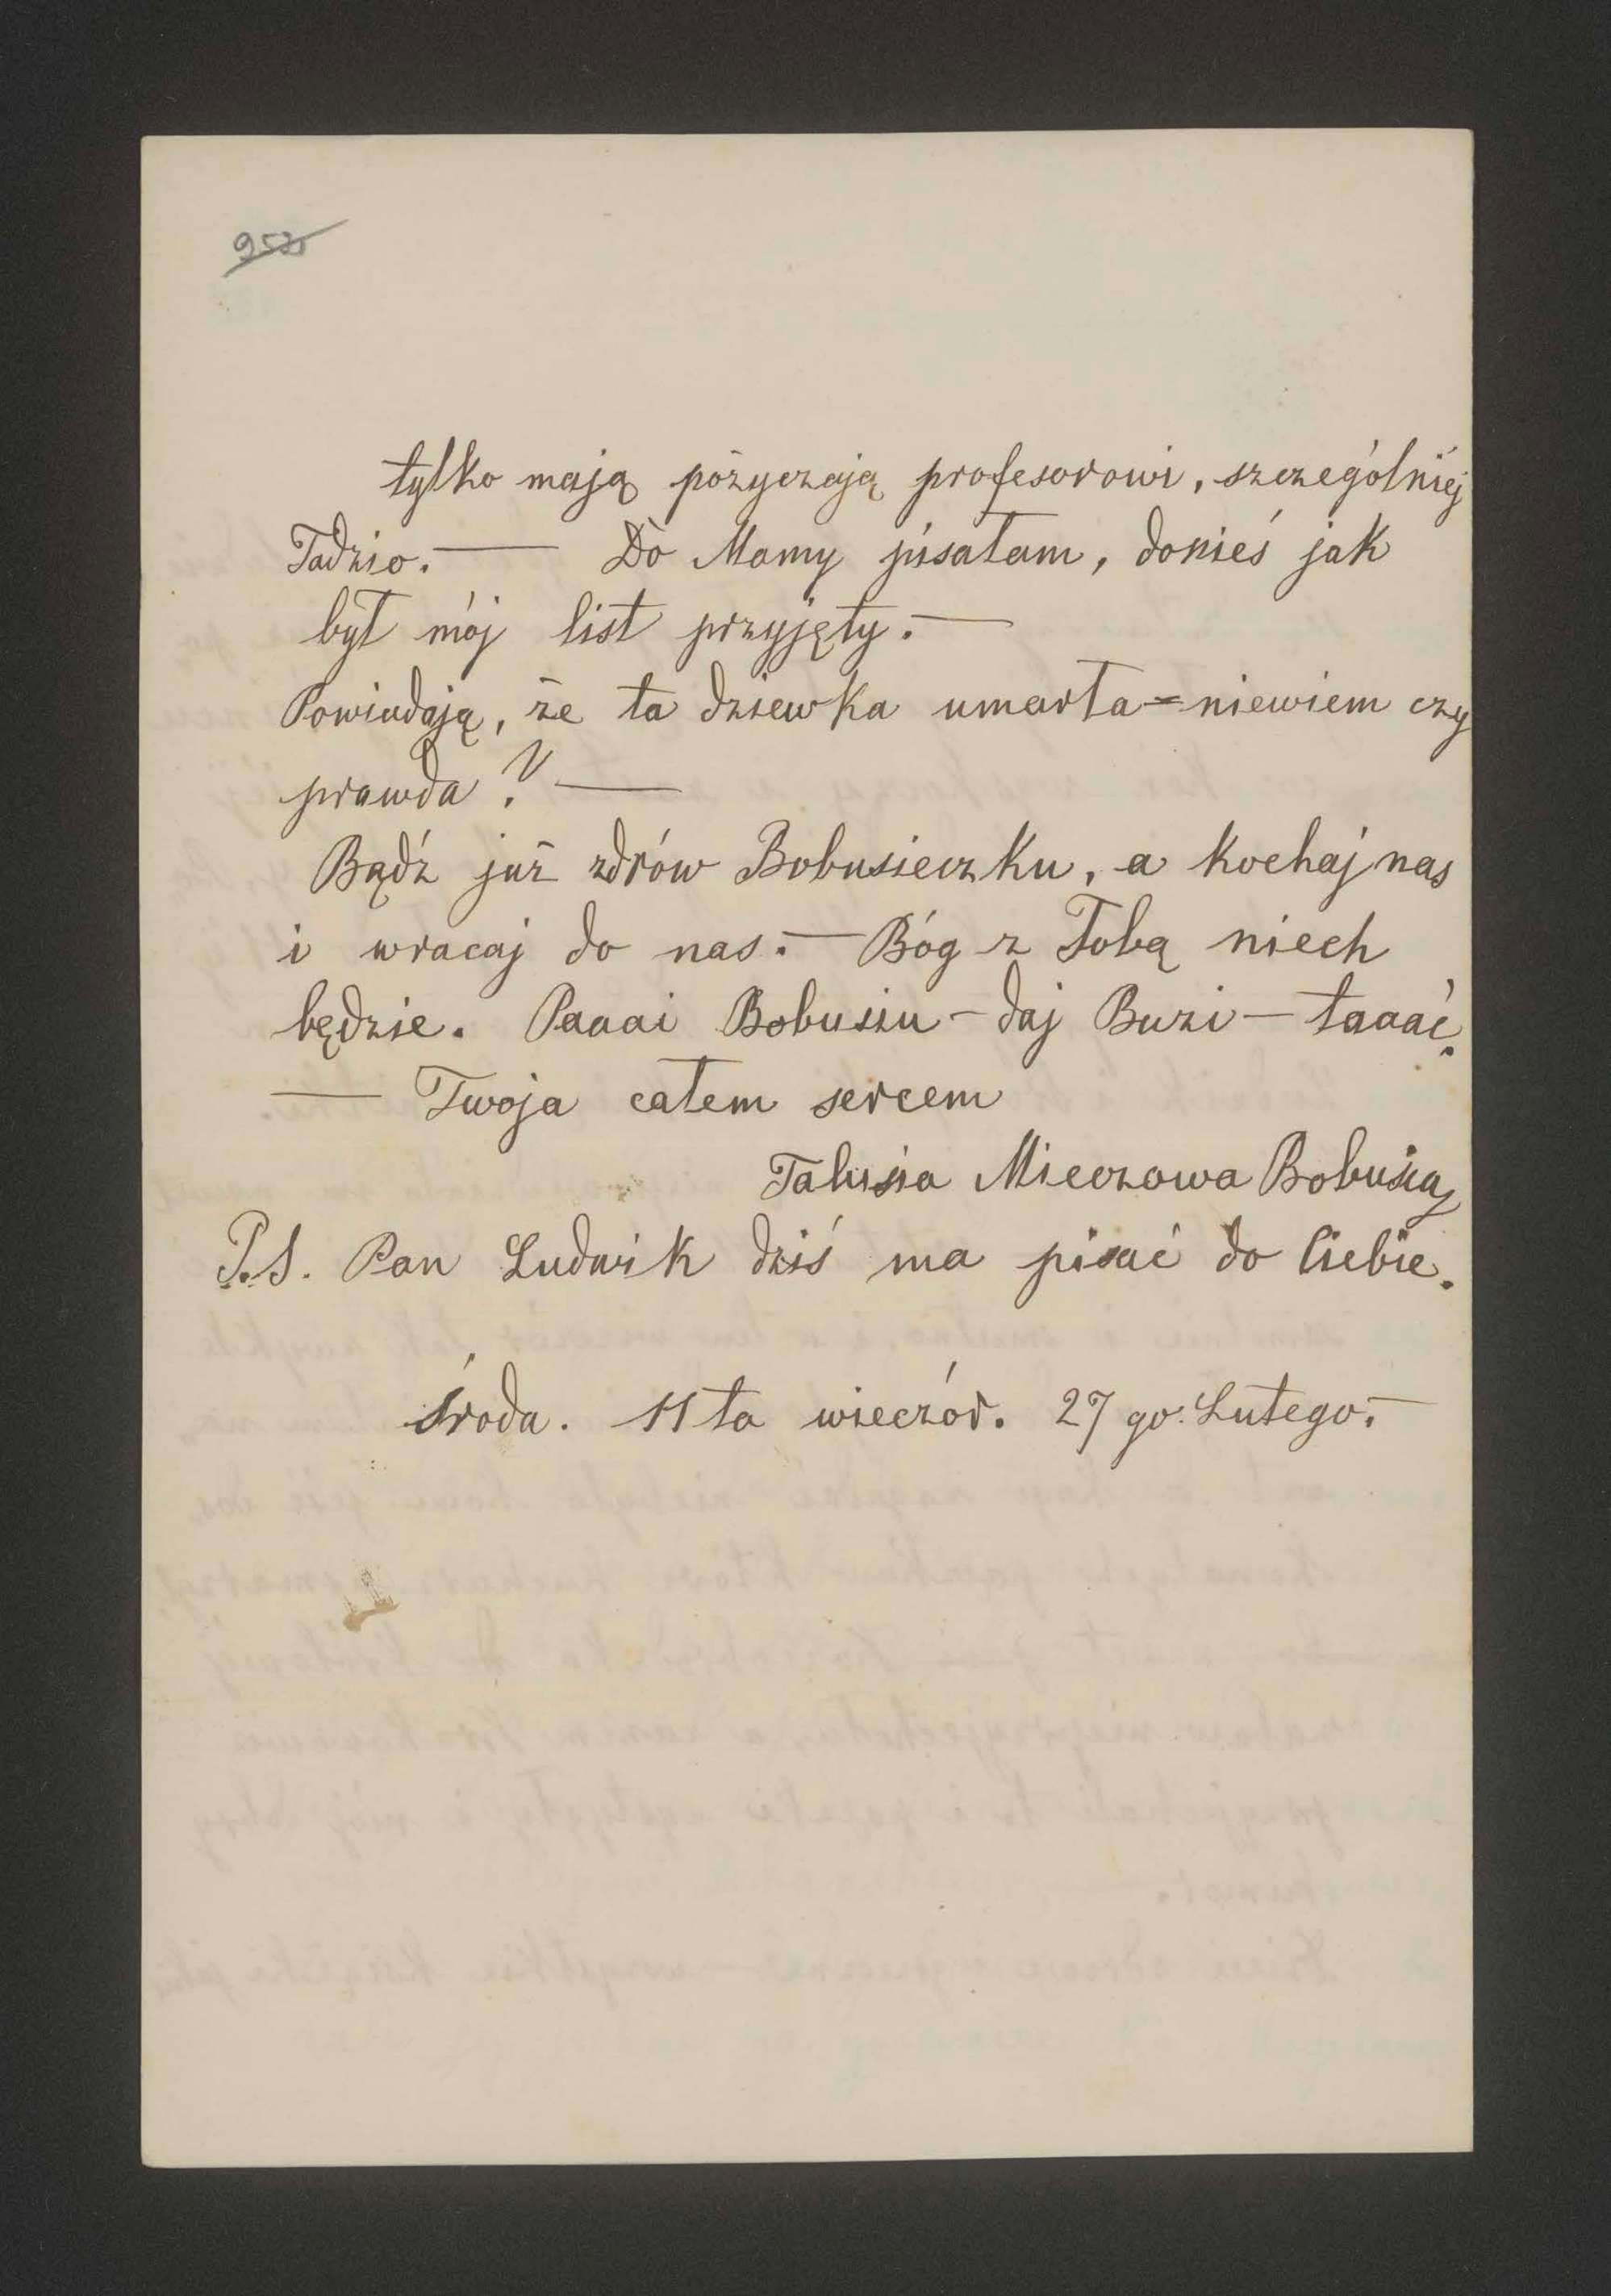 tylko mają pożyczają profesorowi, szczególniej
Tadzio. — Do Mamy pisałam, donieś jak
był mój list przyjęty. —
Powiadają, że ta dziewka umarła = niewiem czy
prawda? —
Bądź już zdrów Bobusieczku, a kochaj nas
i wracaj do nas. — Bóg z Tobą niech
będzie. Paaai Bobusiu – daj Buzi – taaać.
— Twoja całem sercem
Talusia Mieczowa Bobusia
P.S. Pan Ludwik dziś ma pisać do Ciebie.
Środa. 11ta wieczór. 27 go. Lutego. —